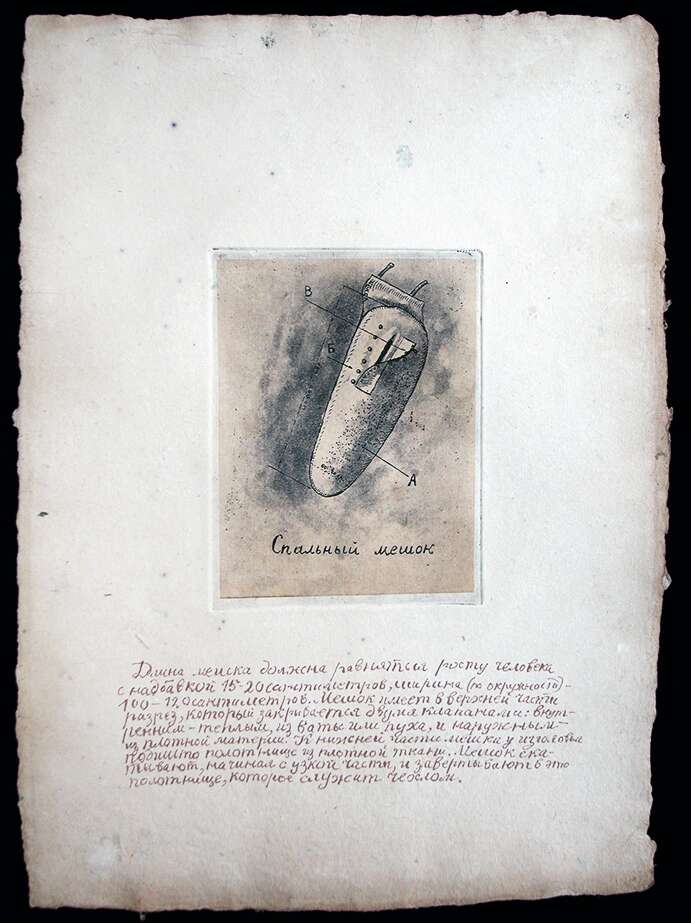 В
Б
А
Спальный мешок
Длина мешка должна равняться росту человека
с надбавкой 15-20 сантиметров, ширина (по окружности)-
100-120 сантиметров. Мешок имеет в верхней части
разрез, который закрывается двумя клапанами: внут-
ренним-теплым, из ваты или пуха, и наружным-
из плотной материи. К нижней части мешка у изголовья
полотнище из плотной ткани. Мешок ска-
тывают, начиная с узкой части, и завертывают в это
полотнище, которое служит чехлом.